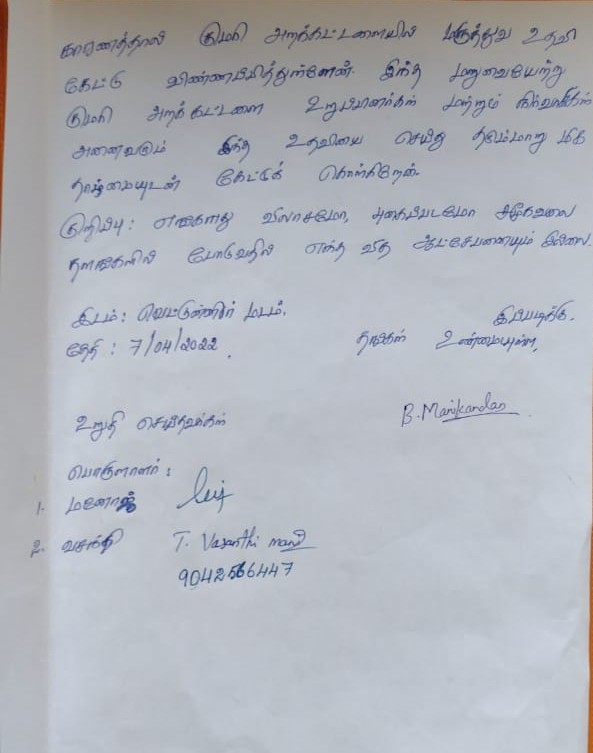 காரணத்தால் குமரி அறக்கட்டளையில் மருத்துவ உதவி
கேட்டு விண்ணப்பித்துள்ளேன். இந்த மனுவையேற்று
குமரி அறக்கட்டளை உறுப்பினர்கள் மற்றும் நிர்வாகிகள்
அனைவரும் இந்த உதவியை செய்து தரும்மாறு மிக
தாழ்மையுடன் கேட்டுக் கொள்கிறேன்.
குறிப்பு: எங்களது விலாசமோ, புகைப்படமோ சமூகவலை
தளங்களில் போடுவதில் எந்த வித ஆட்சேபனையும் இல்லை.
இடம்: வெட்டுன்னிர் மடம்.
இப்படிக்கு.
தேதி: 7/04/2022.
தங்கள் உண்மையுள்ள,
B. Manikandan
உறுதி செய்தவர்கள்
பொருளாளர்:
1. மனோஜ்
2. வசந்தி T. Vasanthi mani
9042566447